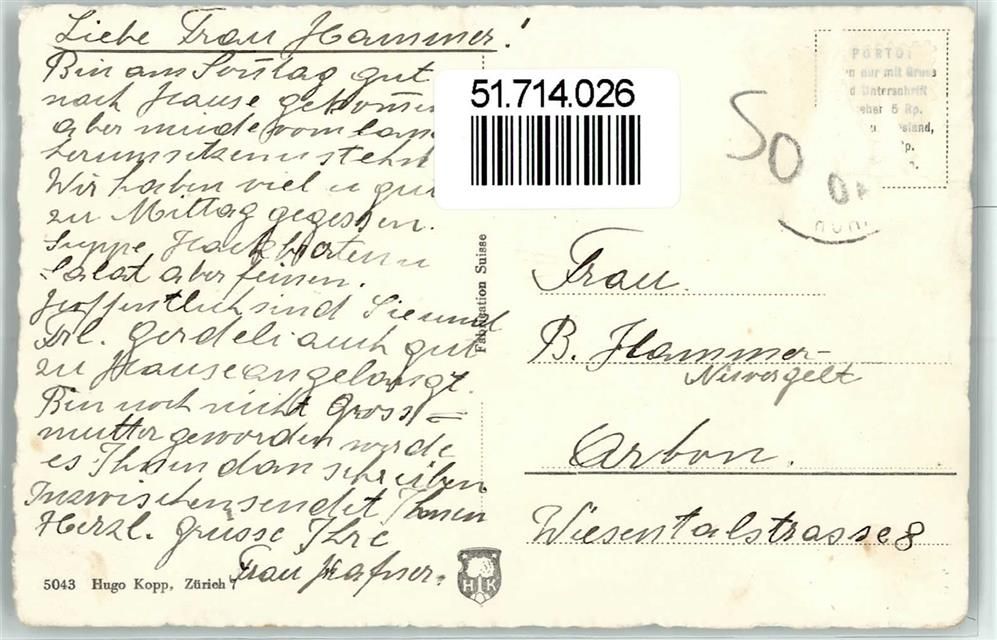 Liebe Frau Hammer!
Bin am Son̄tag gut
nach Hause gekom̄en
aber müde vom
herumsitzen u stehn
Wir haben viel u gut
zu Mittag gegessen.
Suppe Hackbraten u
Salat aber feinen.
Hoffentlich sind Sie und
Frl. Gerdeli auch gut
zu Hause angelangt.
Bin noch nicht Gross=
mutter geworden werde
es Ihnen dan schreiben
Inzwischen sendet Ihnen
Herzl. Grüsse Ihre
Frau Hafner.
5043 Hugo Kopp, Zürich 7
Fabrication Suisse
HK
51.714.026
PORTO:
nur mit Gruss
Unterschrift
5 Rp.
50
Frau
B. Hammer-
Nievergelt
Arbon.
Wiesentalstrasse 8